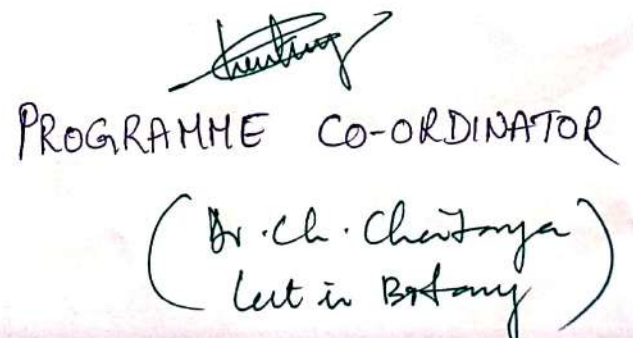 PROGRAMME CO-ORDINATOR
(Dr. Ch. Chaitanya
Lect in Botany)